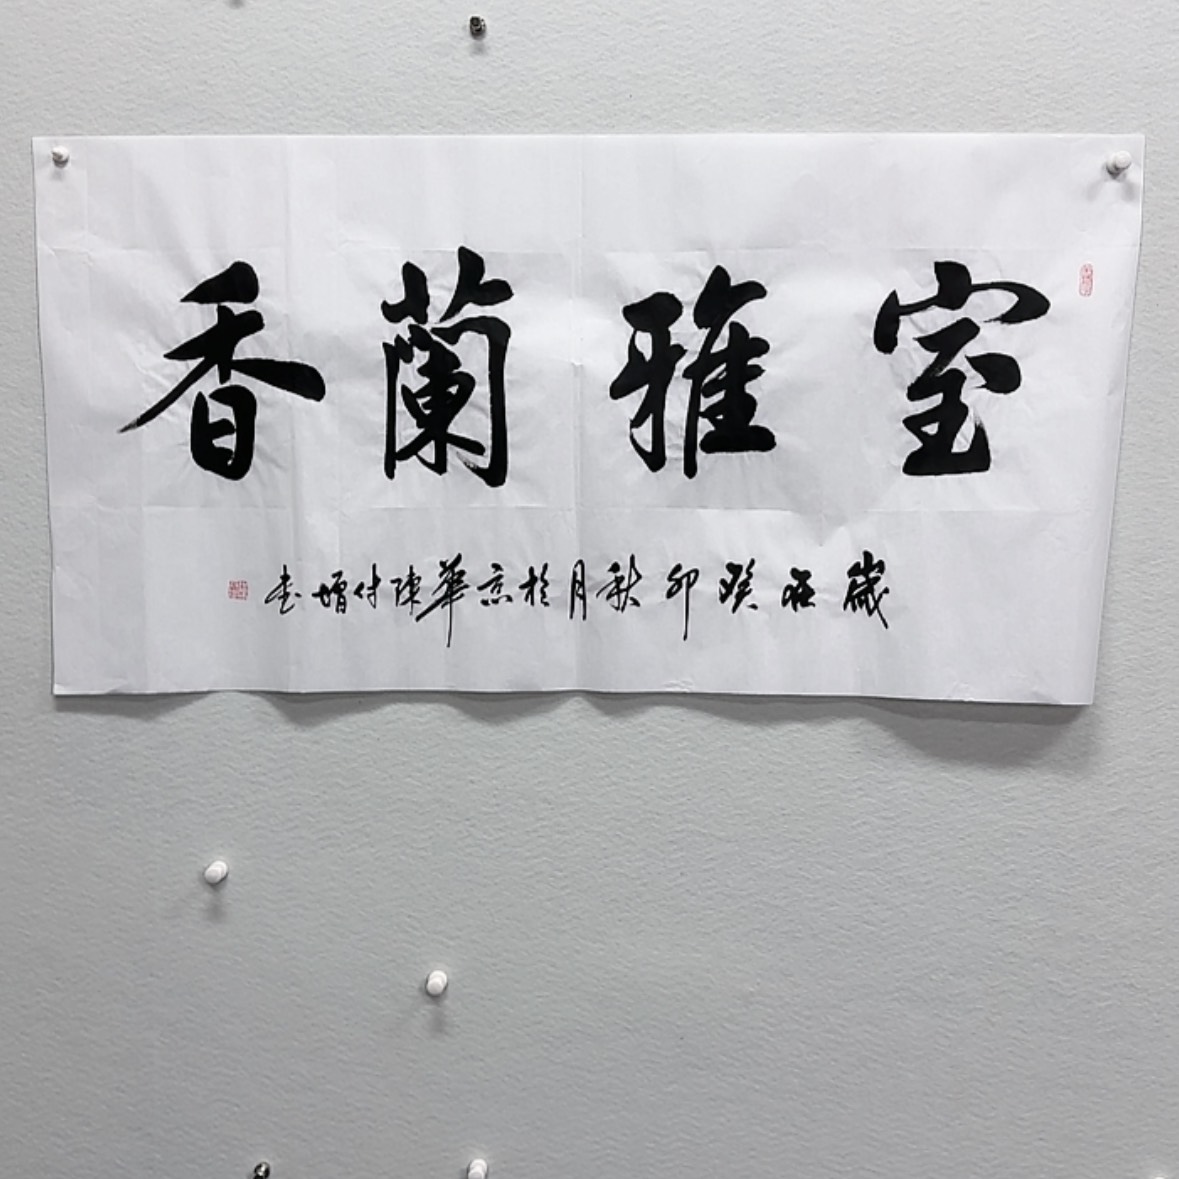 室雅蘭香
歲在癸卯秋月於京華陳付增書